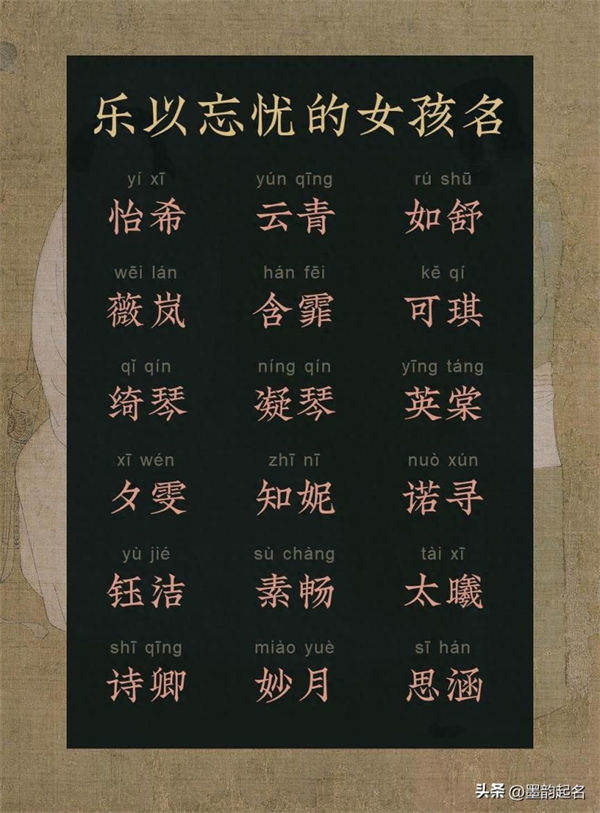 乐以忘忧的女孩名
yí xī yún qīng rú shū
怡希 云青 如舒
wēi lán hán fēi kě qí
薇岚 含霏 可琪
qǐ qín níng qín yīng táng
绮琴 凝琴 英棠
xī wén zhī nī nuò xún
夕雯 知妮 诺寻
yù jié sù chàng tài xī
钰洁 素畅 太曦
shī qīng miào yuè sī hán
诗卿 妙月 思涵
头条 @墨韵起名